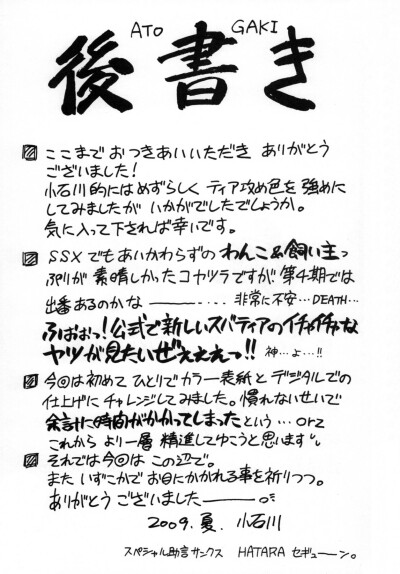 ATO GAKI
後書き
ここまで おつきあいいただき ありがとう
ございました!
小石川的にはめずらしく ティア攻め色を強めに
してみましたが いかがでしたでしょうか。
気に入って下されば幸いです。
SSXでもあいかわらずの わんこ&飼い主っ
ぷりが 素晴しかったコヤツラですが、第4期では
出番あるのかな ―――‥‥ 非常に不安…DEATH…
ふおぉっ!公式で新しいスパティアのイチャイチャな
ヤツが見たいぜぇぇぇっ!! 神…よ…!!
今回は初めて ひとりでカラー表紙と デジタルでの
仕上げに チャレンジしてみました。慣れないせいで
余計に時間がかかってしまったという … orz
これから より一層 精進してゆこうと思います
それでは今回は この辺で。
また いずこかで お目にかかれる事を祈りつつ。
ありがとう ございました―――。
2009. 夏. 小石川
スペシャル助言サンクス HATARA セギューーン。